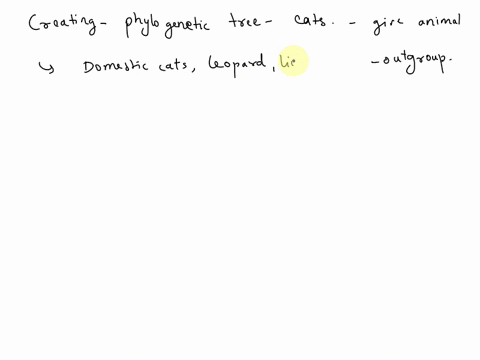 Creating - phylogenetic tree - cats. - give animal
↳ Domestic cats, leopard, lio - outgroup.